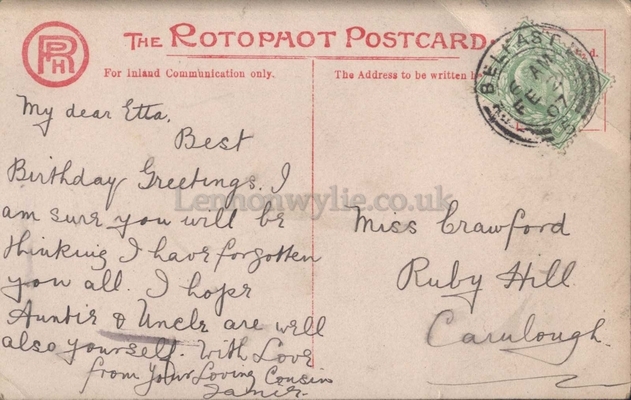 RPPH
THE ROTOPHOT POSTCARD
For Inland Communication only.
The Address to be written
BELFAST
FE 2
07
My dear Etta,
Best
Birthday Greetings. I
am sure you will be
thinking I have forgotten
you all. I hope
Auntie & Uncle are well
also yourself. With Love
from Your Loving Cousin
Miss Crawford
Ruby Hill
Carulough.
Lennonwylie.co.uk